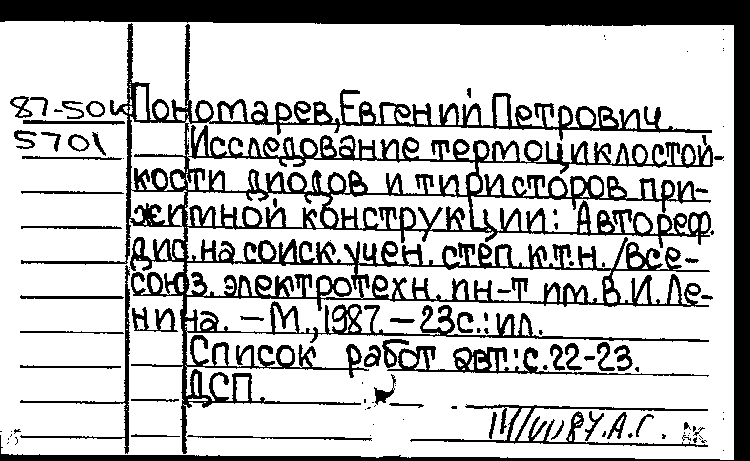 87-50к Пономарев, Евгений Петрович.
5701 Исследование термоциклостой-
кости диодов и тиристоров при-
жимной конструкции: Автореф.
дис. на соиск. учен. степ. к.т.н. /Все-
союз. электротехн. ин-т им. В.И. Ле-
нина. – М., 1987. – 23с.: ил.
Список работ авт.: с. 22-23.
ДСП.
А.Г. АК